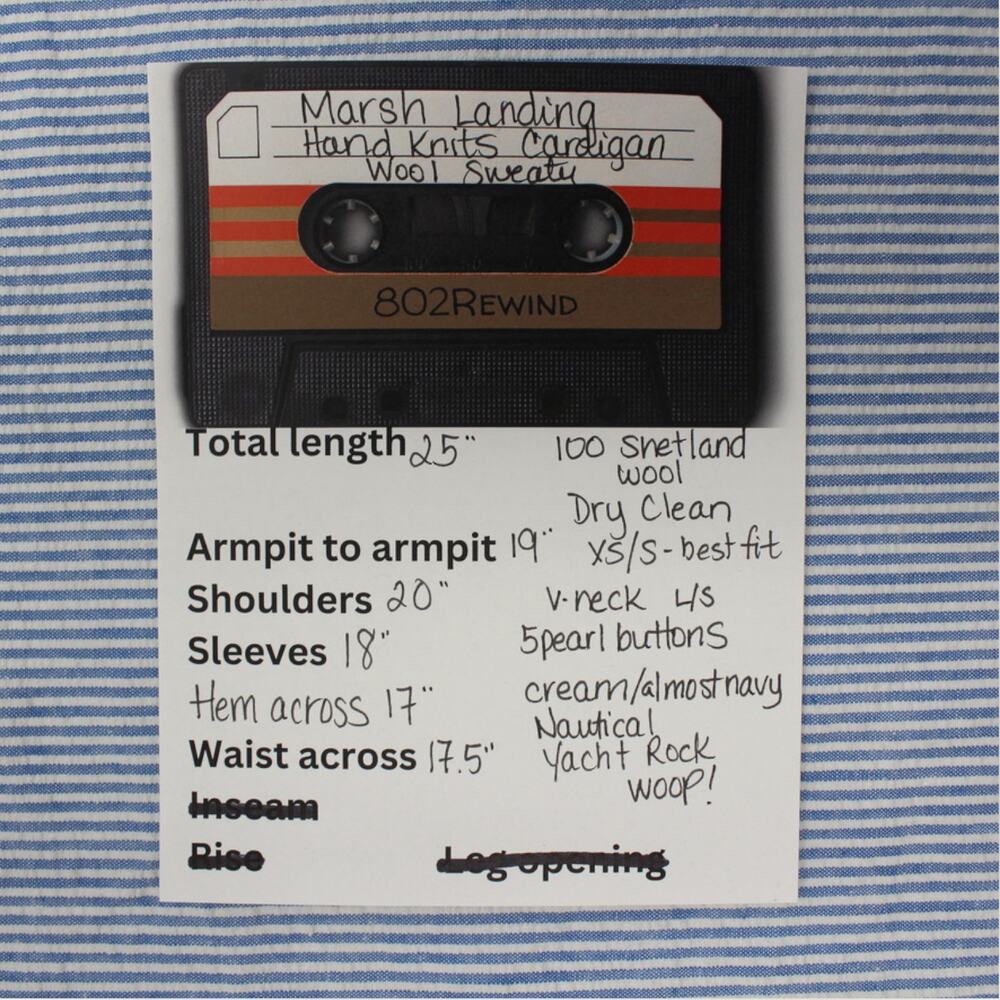 Marsh Landing
Hand Knits Cardigan
Wool Sweaty
802REWIND
Total length 25"
100 Shetland
wool
Dry Clean
Armpit to armpit 19"
XS/S-best fit
Shoulders 20"
V-neck L/S
Sleeves 18"
5pearl buttons
Hem across 17"
cream/almost navy
Nautical
Waist across 17.5"
Yacht Rock
WOOP!
Inseam
Rise
Leg opening